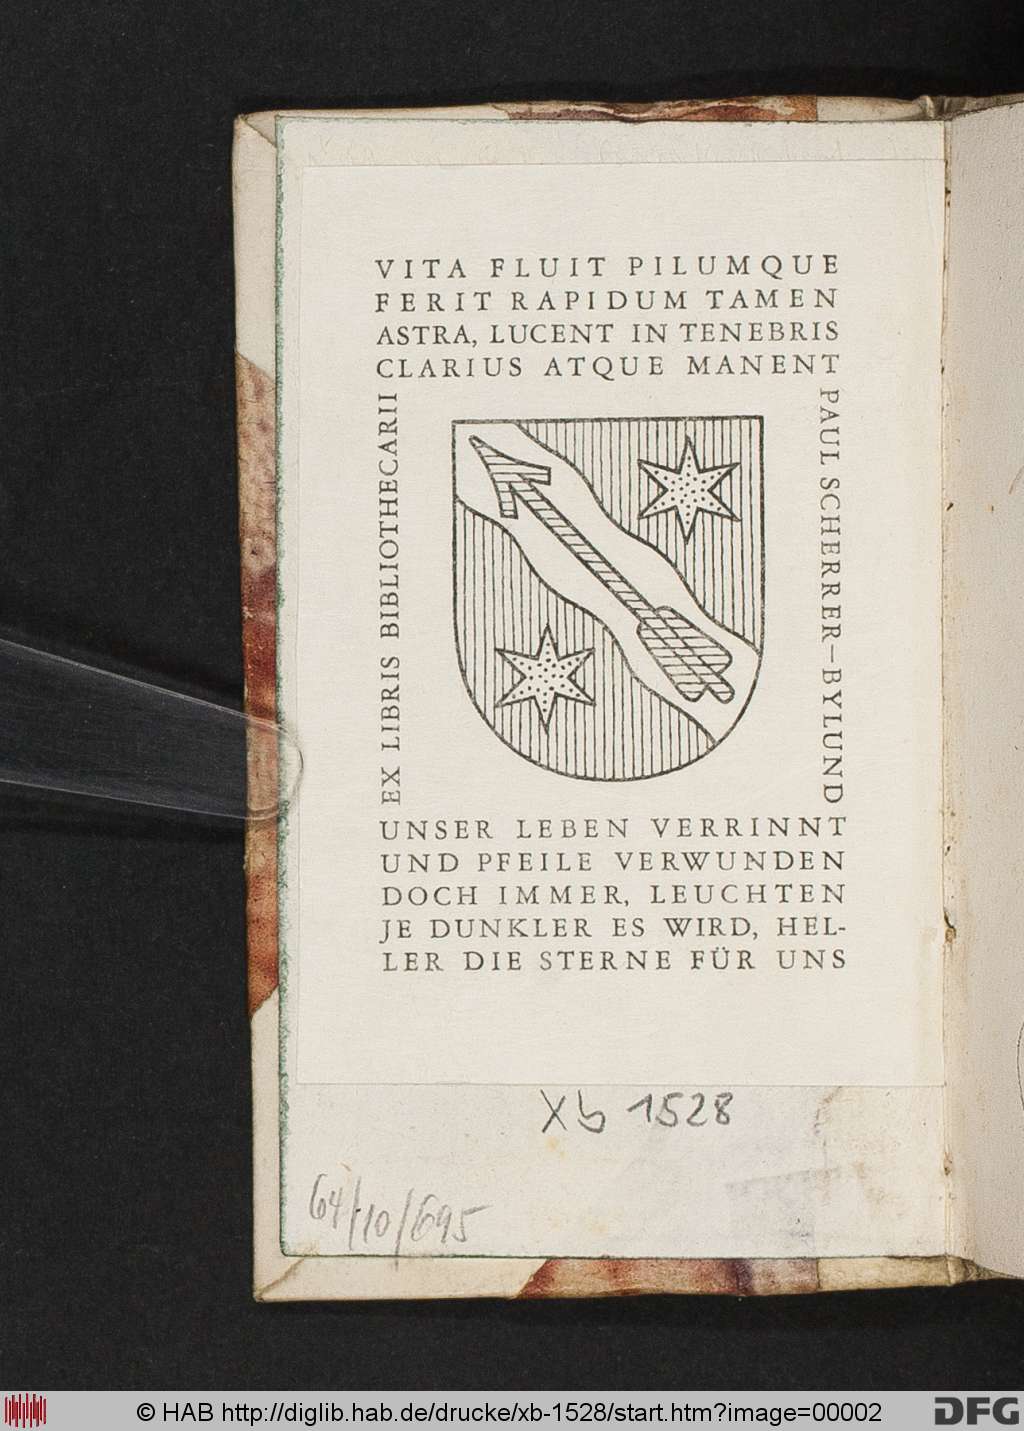 VITA FLUIT PILUMQUE
FERIT RAPIDUM TAMEN
ASTRA, LUCENT IN TENEBRIS
CLARIUS ATQUE MANENT
EX LIBRIS BIBLIOTHECARII
PAUL SCHERRER–BYLUND
UNSER LEBEN VERRINNT
UND PFEILE VERWUNDEN
DOCH IMMER, LEUCHTEN
JE DUNKLER ES WIRD, HEL-
LER DIE STERNE FÜR UNS
Xb 1528
64/10/695
© HAB http://diglib.hab.de/drucke/xb-1528/start.htm?image=00002
DFG